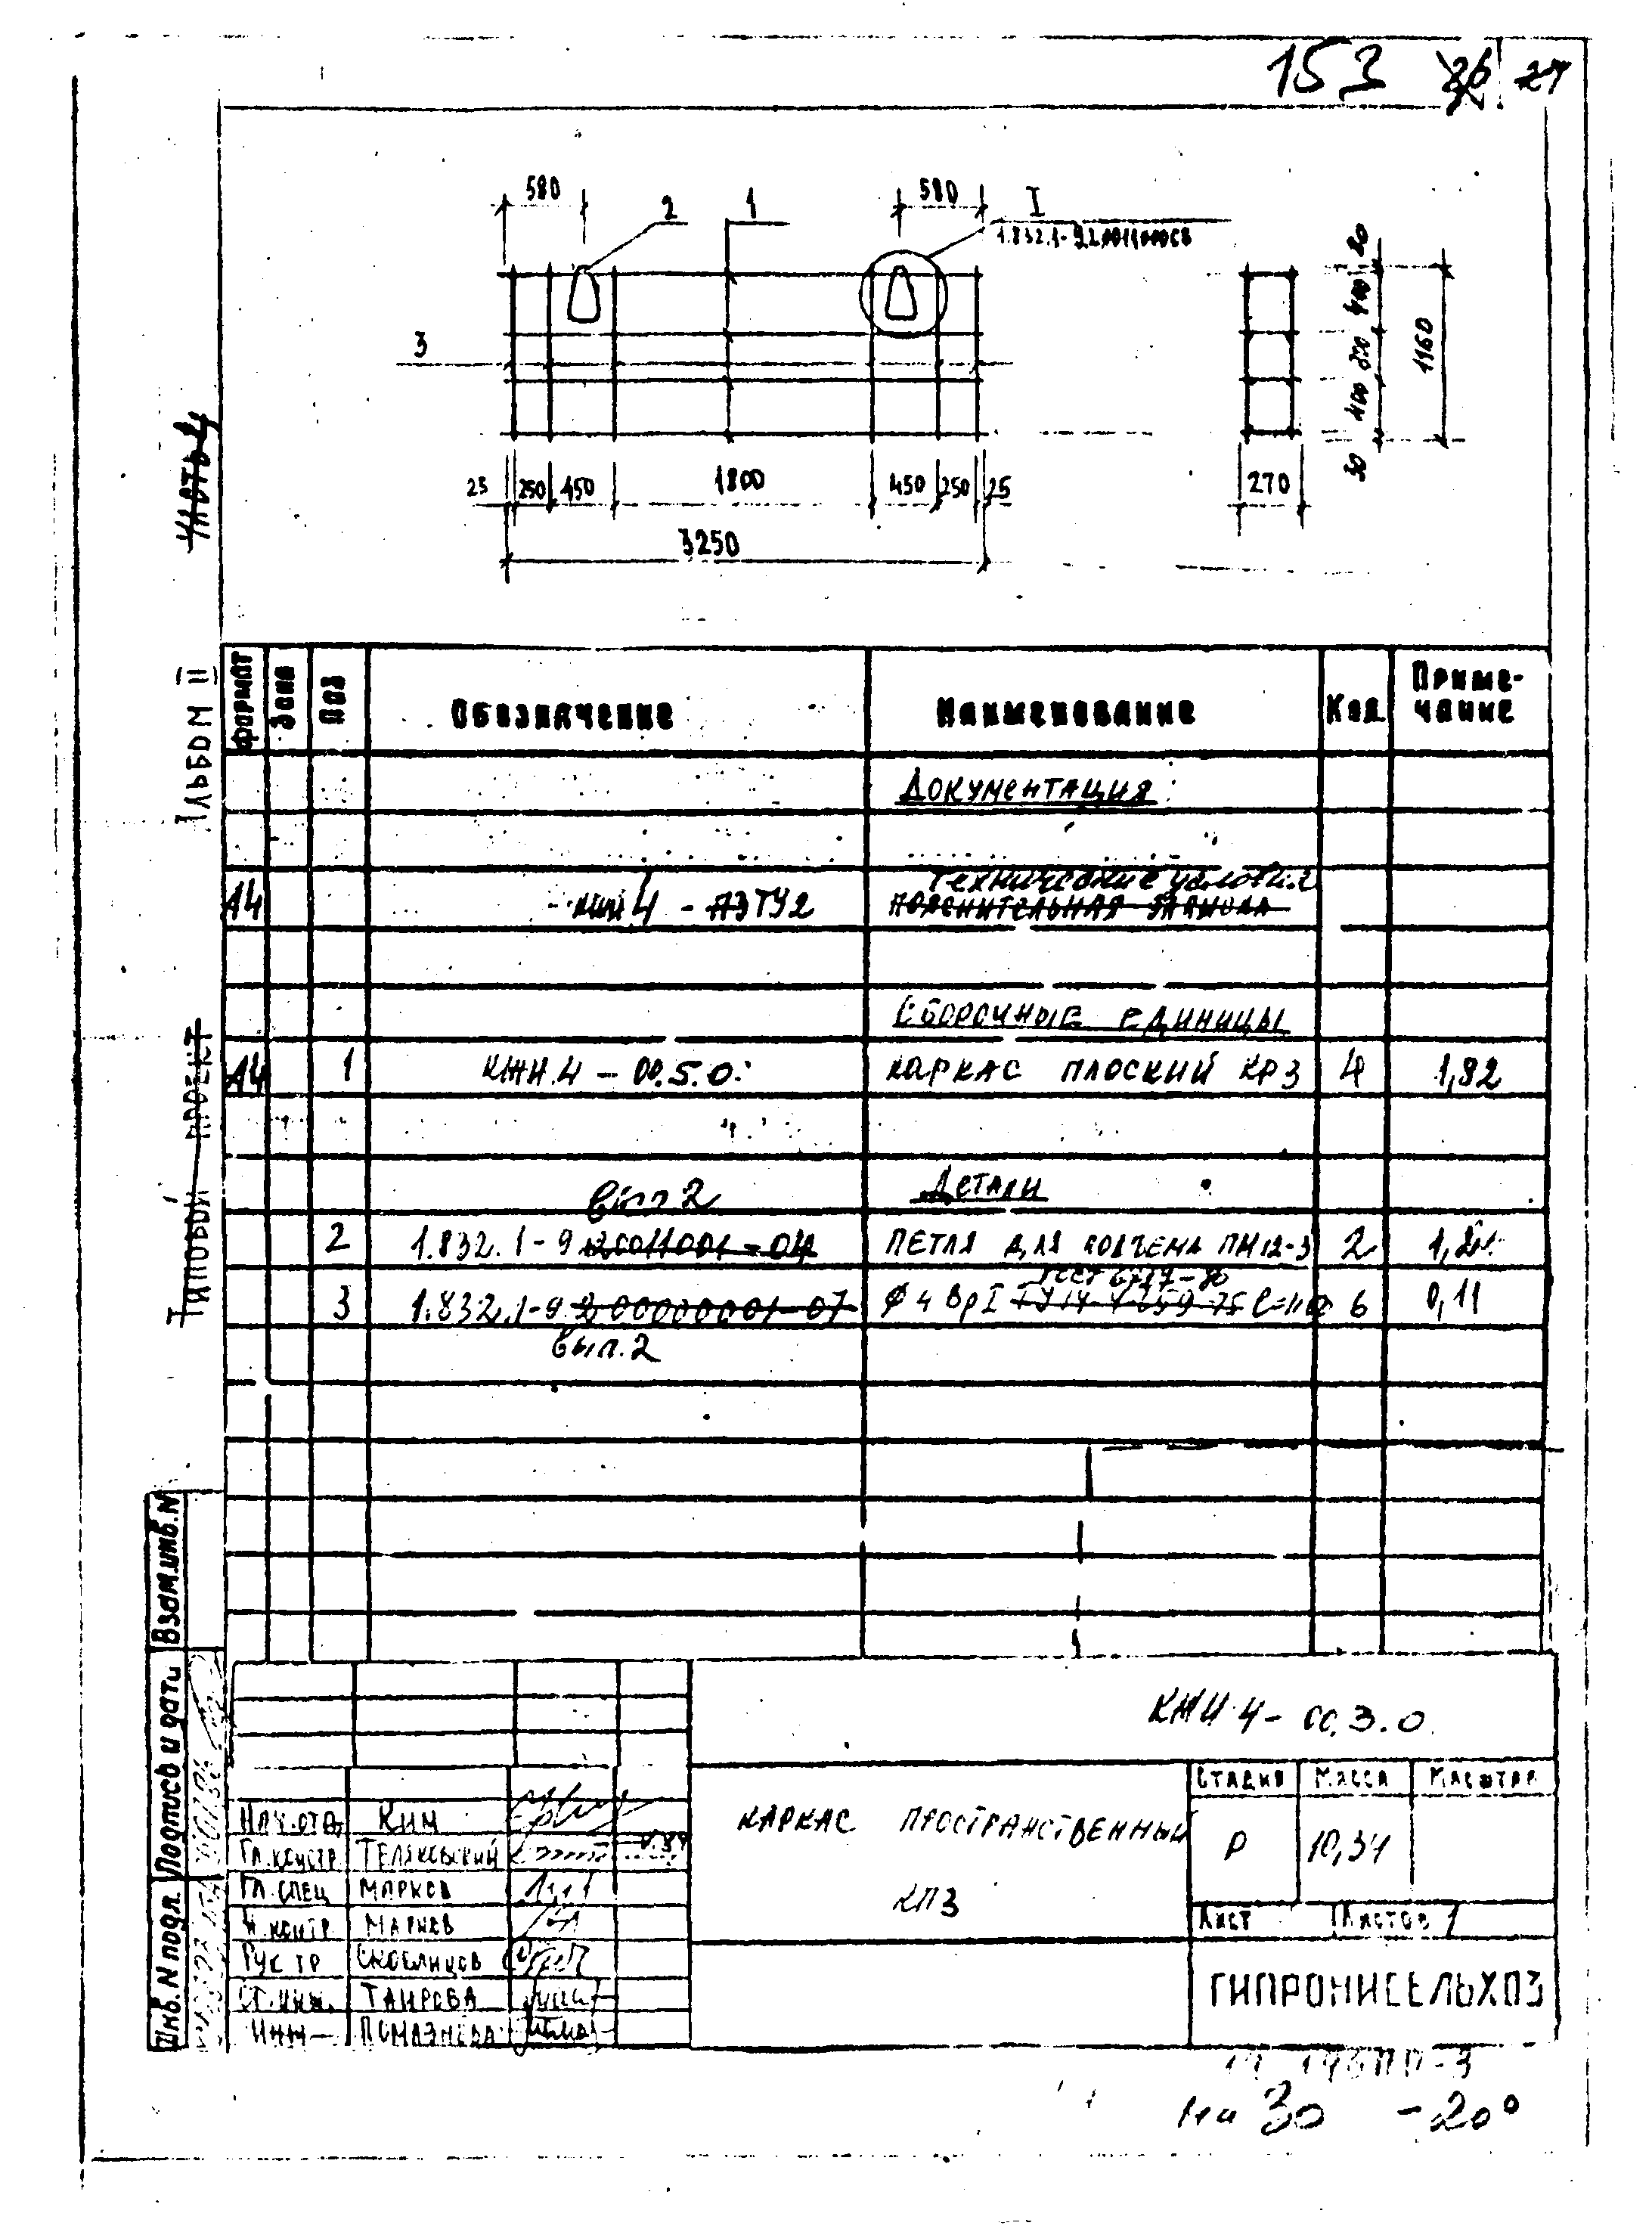 153 26 27
580 2 1 580 I
1.832.1-9.2.0011000СБ
3
25 250 450 1800 450 250 25
3250
270
30 400 400 20
1160
Часть 4
Альбом II
Типовой проект
Формат Зона Поз Обозначение Наименование Кол. Приме-
чание
Документация
Технические условия
А4 КЖИ 4 - ПЗ ТУ2 Пояснительная записка
Сборочные единицы
А4 1 КЖИ.4 - 00.5.0. Каркас плоский КР3 4 1,82
Вып 2 Детали
2 1.832.1-9.20011001-04 Петля для подъема ПМ12-3 2
ГОСТ 6727-80
3 1.832.1-9.200000001-07 Ф 4 ВрI ТУ14-4-659-75 6 0,11
Вып.2
Взам.инв.N
Подпись и дата
Инв.N подл.
КЖИ 4 - 00.3.0.
Стадия Масса Масштаб
Каркас пространственный
КП3
Р 10,34
Лист Листов 1
ГИПРОНИСЕЛЬХОЗ
Нач.отд. Ким
Гл.констр Теляковский
Гл.спец Марков
Н.контр. Марков
Рук гр Скобликов
Ст.инж. Таирова
Инж Помазнева
На 30 -20°